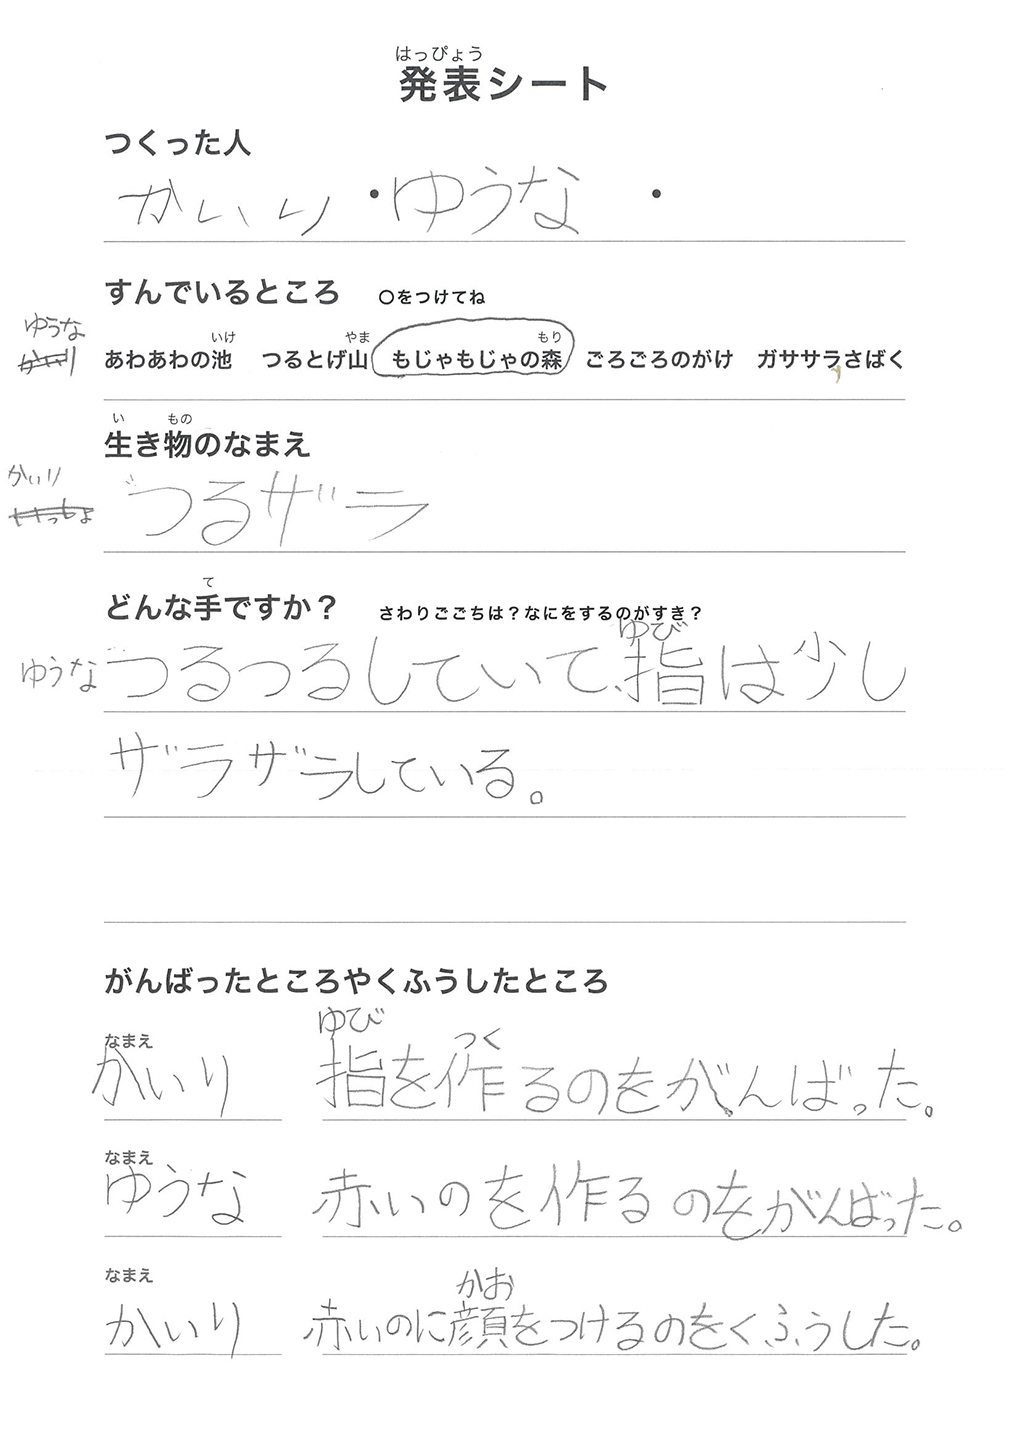 はっぴょう
発表シート
つくった人
かいり・ゆうな ・
すんでいるところ ○をつけてね
ゆうな
いけ やま もり
あわあわの池 つるとげ山 もじゃもじゃの森 ごろごろのがけ ガササラさばく
い もの
生き物のなまえ
かいり
つるザラ
て
どんな手ですか？ さわりごこちは？なにをするのがすき？
ゆび
ゆうな つるつるしていて、指は少し
ザラザラしている。
がんばったところやくふうしたところ
なまえ ゆび つく
かいり 指を作るのをがんばった。
なまえ
ゆうな 赤いのを作るのをがんばった。
なまえ かお
かいり 赤いのに顔をつけるのをくふうした。